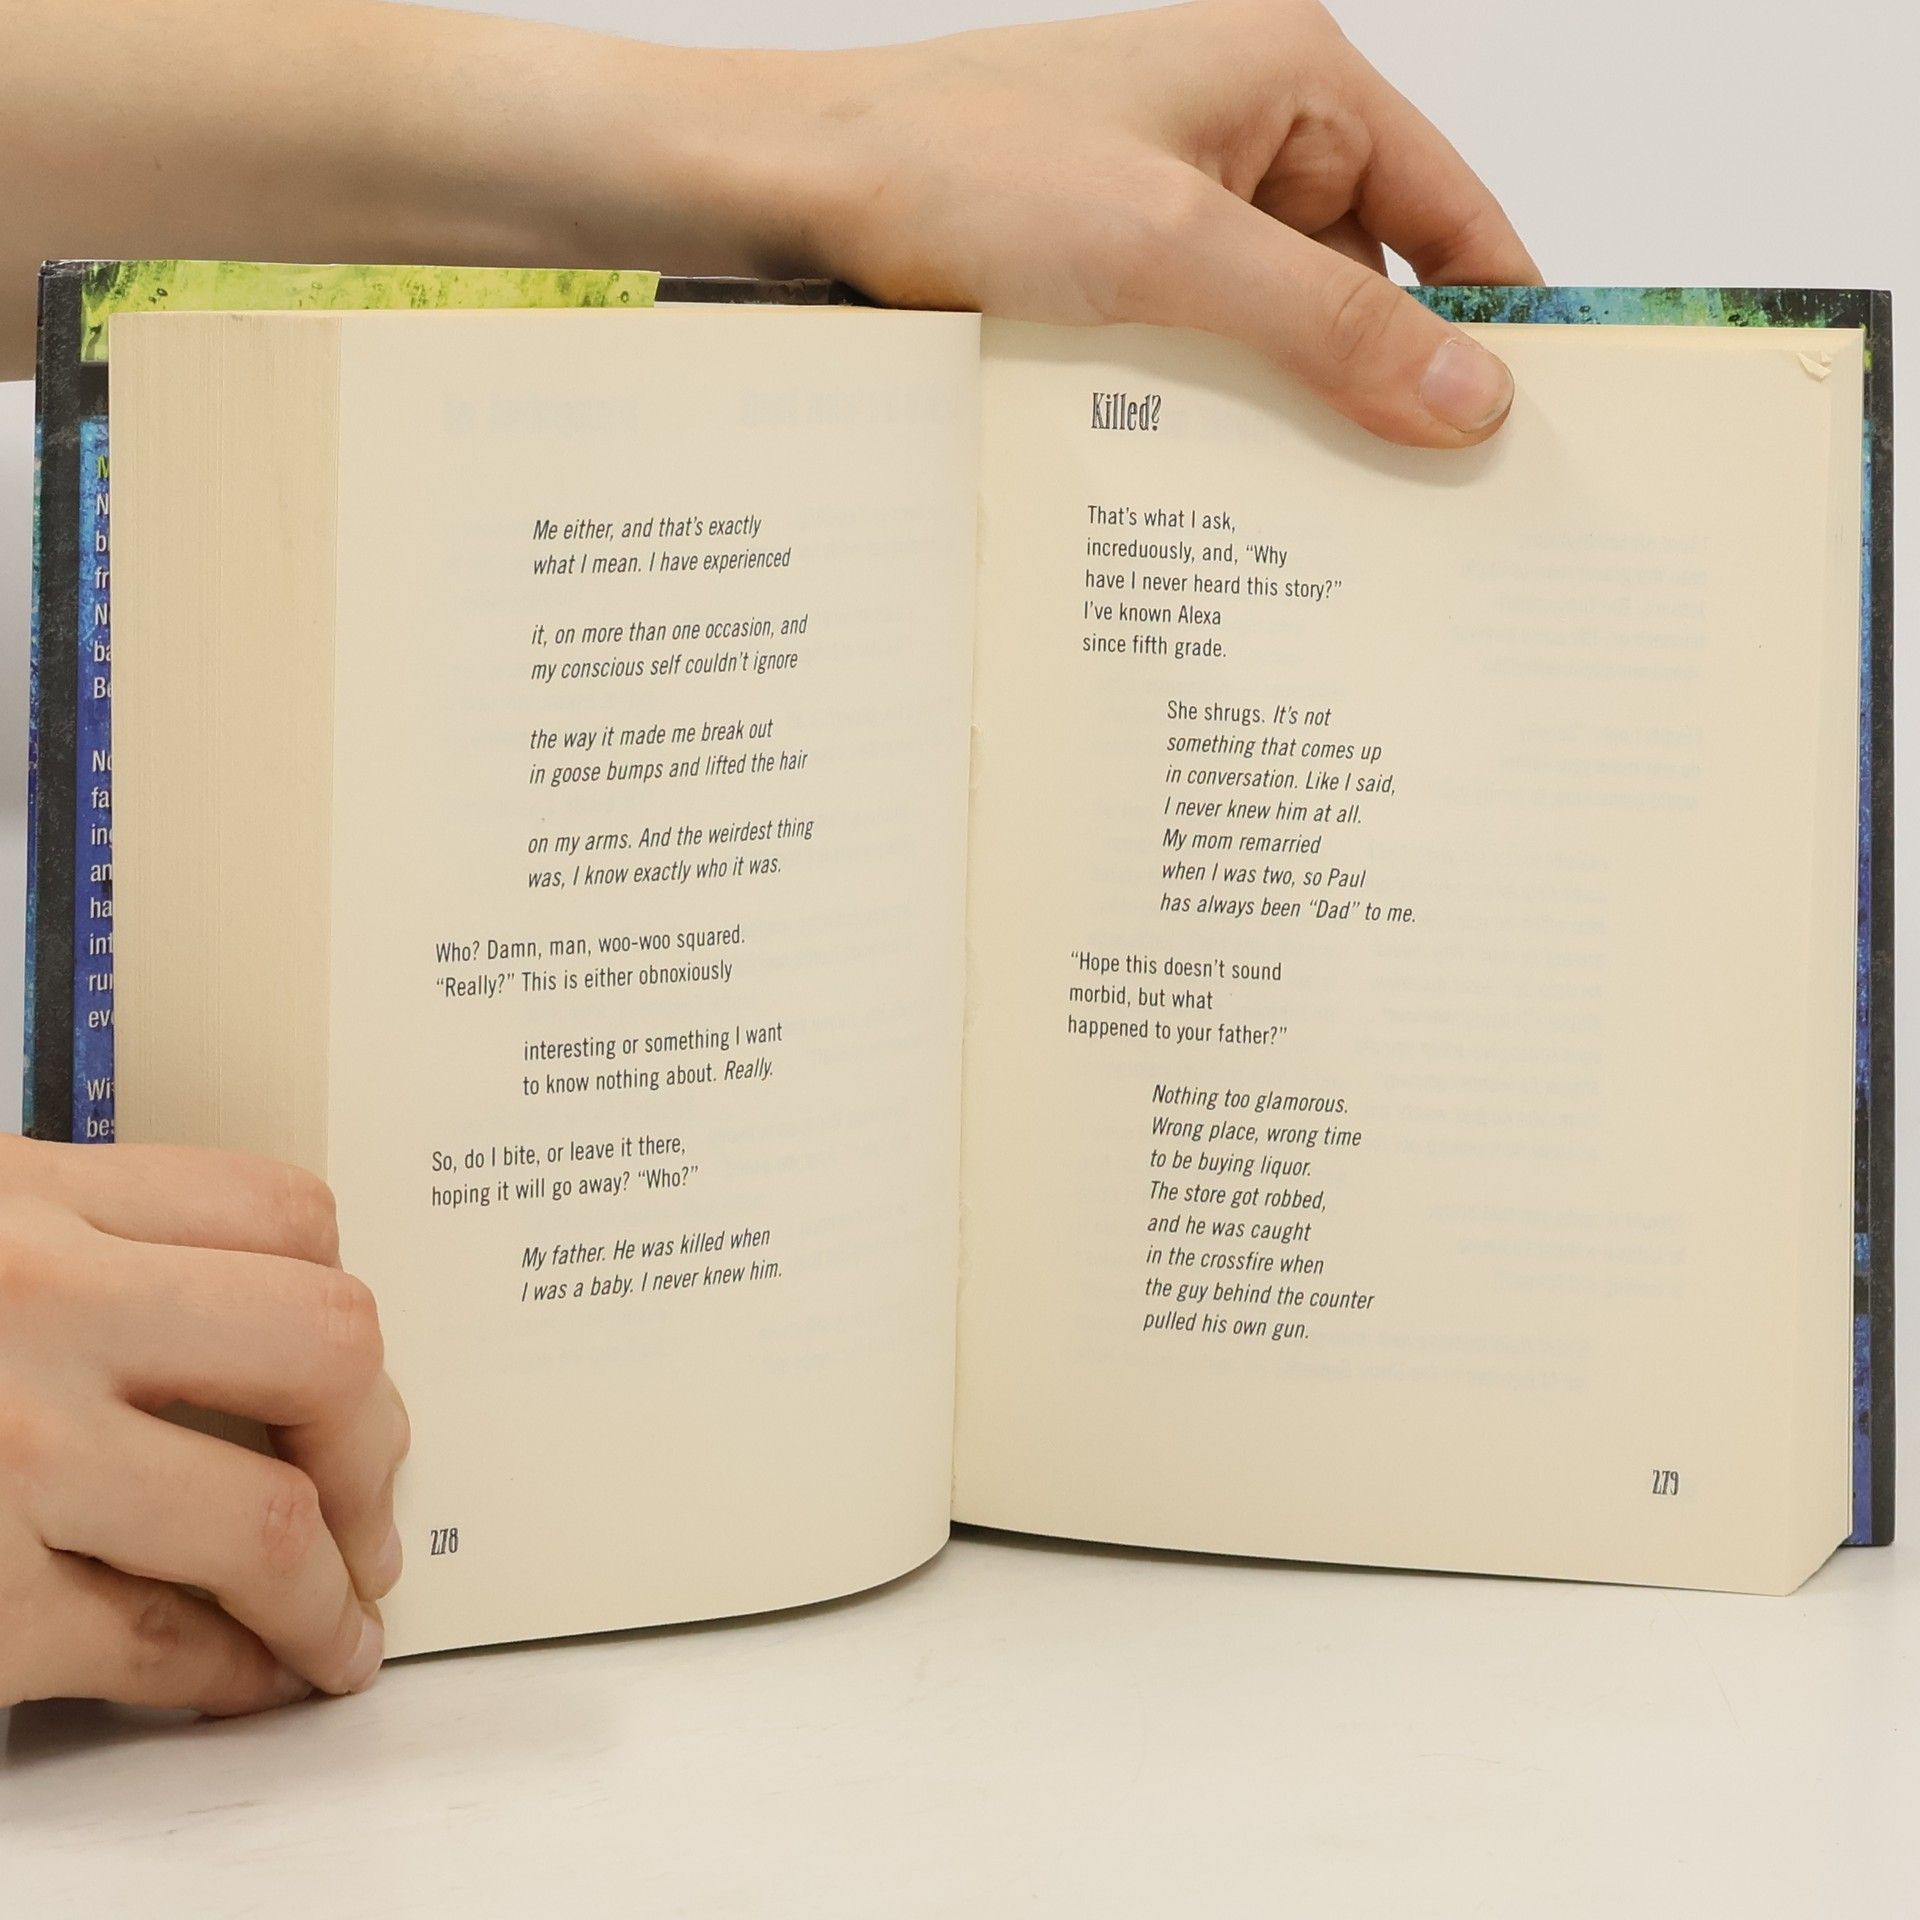 M
N
b
fr
N
ba
Be
No
fa
ing
an
ha
int
rui
eve
Wi
bes
Me either, and that's exactly
what I mean. I have experienced
it, on more than one occasion, and
my conscious self couldn't ignore
the way it made me break out
in goose bumps and lifted the hair
on my arms. And the weirdest thing
was, I know exactly who it was.
Who? Damn, man, woo-woo squared.
“Really?” This is either obnoxiously
interesting or something I want
to know nothing about. Really.
So, do I bite, or leave it there,
hoping it will go away? “Who?”
My father. He was killed when
I was a baby. I never knew him.
278
Killed?
That's what I ask,
increduously, and, “Why
have I never heard this story?”
I've known Alexa
since fifth grade.
She shrugs. It's not
something that comes up
in conversation. Like I said,
I never knew him at all.
My mom remarried
when I was two, so Paul
has always been “Dad” to me.
“Hope this doesn't sound
morbid, but what
happened to your father?”
Nothing too glamorous.
Wrong place, wrong time
to be buying liquor.
The store got robbed,
and he was caught
in the crossfire when
the guy behind the counter
pulled his own gun.
279